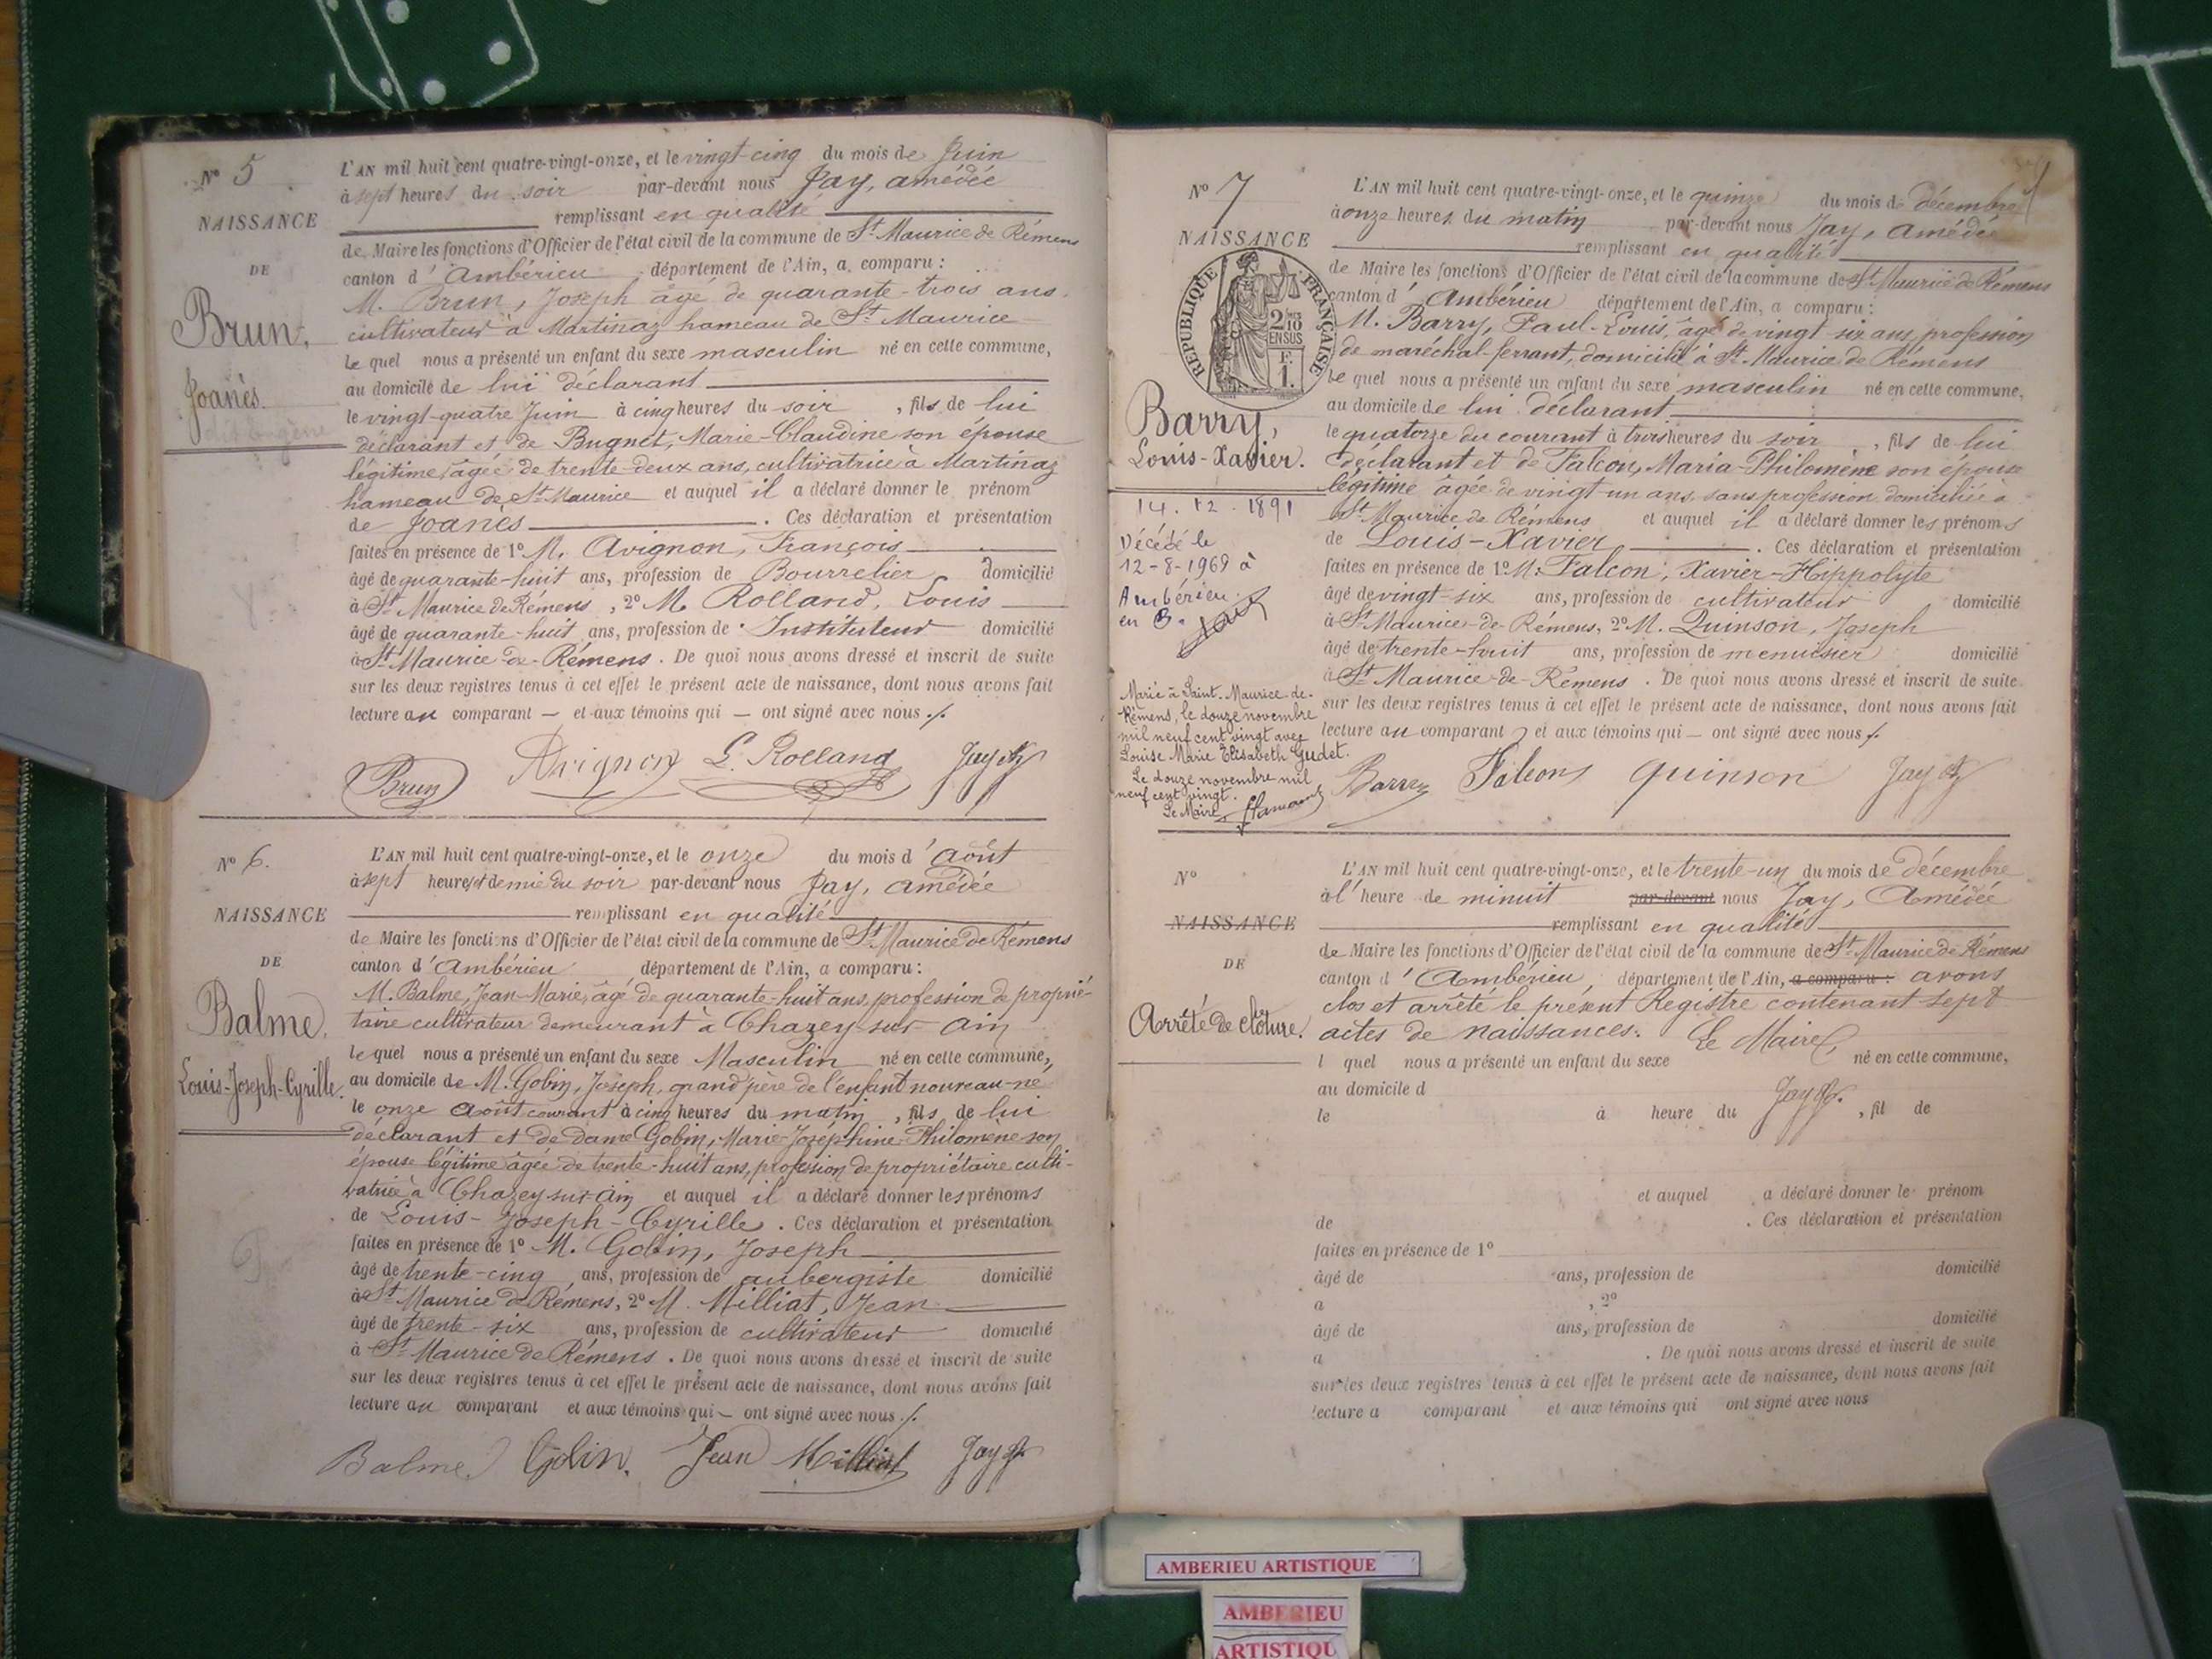 N° 5
NAISSANCE
DE
Brun,
Joanès.
L'AN mil huit cent quatre-vingt-onze, et le vingt-cinq du mois de Juin
à sept heures du soir par-devant nous Jay, amédée
remplissant en qualité
de Maire les fonctions d'Officier de l'état civil de la commune de St Maurice de Rémens
canton d'Ambérieu département de l'Ain, a comparu :
M. Brun, Joseph âgé de quarante-trois ans.
cultivateur à Martinaz hameau de St Maurice
lequel nous a présenté un enfant du sexe masculin né en cette commune,
au domicile de lui déclarant
le vingt-quatre Juin à cinq heures du soir, fils de lui
déclarant et de Bugnet, Marie-Claudine son épouse
légitime, âgée de trente-deux ans, cultivatrice à Martinaz
hameau de St Maurice et auquel il a déclaré donner le prénom
de Joanès. Ces déclaration et présentation
faites en présence de 1° M. Avignon, François
âgé de quarante-huit ans, profession de Bourrelier domicilié
à St Maurice de Rémens, 2° M. Rolland, Louis
âgé de quarante-huit ans, profession de Instituteur domicilié
à St Maurice-de-Rémens. De quoi nous avons dressé et inscrit de suite
sur les deux registres tenus à cet effet le présent acte de naissance, dont nous avons fait
lecture au comparant — et aux témoins qui — ont signé avec nous ./.
Brun Avignon L. Rolland Jay
N° 6.
NAISSANCE
DE
Balme,
Louis-Joseph-Cyrille.
L'AN mil huit cent quatre-vingt-onze, et le onze du mois d'août
à sept heures et demie du soir par-devant nous Jay, amédée
remplissant en qualité
de Maire les fonctions d'Officier de l'état civil de la commune de St Maurice de Rémens
canton d'Ambérieu département de l'Ain, a comparu :
M. Balme, Jean-Marie, âgé de quarante-huit ans, profession de proprié-
taire cultivateur demeurant à Chazey-sur-Ain
lequel nous a présenté un enfant du sexe Masculin né en cette commune,
au domicile de M. Gobin, Joseph, grand'père de l'enfant nouveau-né
le onze août courant à cinq heures du matin, fils de lui
déclarant et de dame Gobin, Marie-Joséphine-Philomène son
épouse légitime âgée de trente-huit ans, profession de propriétaire culti-
vatrice à Chazey-sur-Ain et auquel il a déclaré donner les prénoms
de Louis-Joseph-Cyrille. Ces déclaration et présentation
faites en présence de 1° M. Gobin, Joseph
âgé de trente-cinq ans, profession de aubergiste domicilié
à St Maurice de Rémens, 2° M. Milliat, Jean
âgé de trente-six ans, profession de cultivateur domicilié
à St Maurice de Rémens. De quoi nous avons dressé et inscrit de suite
sur les deux registres tenus à cet effet le présent acte de naissance, dont nous avons fait
lecture au comparant et aux témoins qui — ont signé avec nous ./.
Balme Gobin. Jean Milliat Jay
N° 7
NAISSANCE
RÉPUBLIQUE FRANÇAISE
2/10
EN SUS
F.
1.
Barry,
Louis-Xavier.
14. 12. 1891
Décédé le
12-8-1969 à
Ambérieu
en B.
Marié à Saint-Maurice-de-
Rémens, le douze novembre
mil neuf cent vingt avec
Louise Marie Elisabeth Gudet.
Le douze novembre mil
neuf cent vingt.
Le Maire
L'AN mil huit cent quatre-vingt-onze, et le quinze du mois de décembre
à onze heures du matin par-devant nous Jay, amédée
remplissant en qualité
de Maire les fonctions d'Officier de l'état civil de la commune de St Maurice de Rémens
canton d'Ambérieu département de l'Ain, a comparu :
M. Barry, Paul-Louis, âgé de vingt-six ans, profession
de maréchal-ferrant, domicilié à St Maurice de Rémens
lequel nous a présenté un enfant du sexe masculin né en cette commune,
au domicile de lui déclarant
le quatorze du courant à trois heures du soir, fils de lui
déclarant et de Falcon, Maria-Philomène son épouse
légitime âgée de vingt-un ans, sans profession domiciliée à
St Maurice de Rémens et auquel il a déclaré donner les prénoms
de Louis-Xavier. Ces déclaration et présentation
faites en présence de 1° M. Falcon, Xavier-Hippolyte
âgé de vingt-six ans, profession de cultivateur domicilié
à St Maurice-de-Rémens, 2° M. Quinson, Joseph
âgé de trente-huit ans, profession de menuisier domicilié
à St Maurice-de-Rémens. De quoi nous avons dressé et inscrit de suite
sur les deux registres tenus à cet effet le présent acte de naissance, dont nous avons fait
lecture au comparant et aux témoins qui — ont signé avec nous ./.
Barry Falcon quinson Jay
N°
NAISSANCE
DE
Arrêté de clôture.
L'AN mil huit cent quatre-vingt-onze, et le trente-un du mois de décembre
à l'heure de minuit par-devant nous Jay, Amédée
remplissant en qualité
de Maire les fonctions d'Officier de l'état civil de la commune de St Maurice de Rémens
canton d'Ambérieu, département de l'Ain, a comparu : avons
clos et arrêté le présent Registre contenant sept
actes de naissances. Le Maire,
l quel nous a présenté un enfant du sexe né en cette commune,
au domicile d
Jay
le à heure du , fil de
et auquel a déclaré donner le prénom
de . Ces déclaration et présentation
faites en présence de 1°
âgé de ans, profession de domicilié
à , 2°
âgé de ans, profession de domicilié
à . De quoi nous avons dressé et inscrit de suite
sur les deux registres tenus à cet effet le présent acte de naissance, dont nous avons fait
lecture a comparant et aux témoins qui ont signé avec nous
AMBERIEU ARTISTIQUE
AMBERIEU
ARTISTIQU